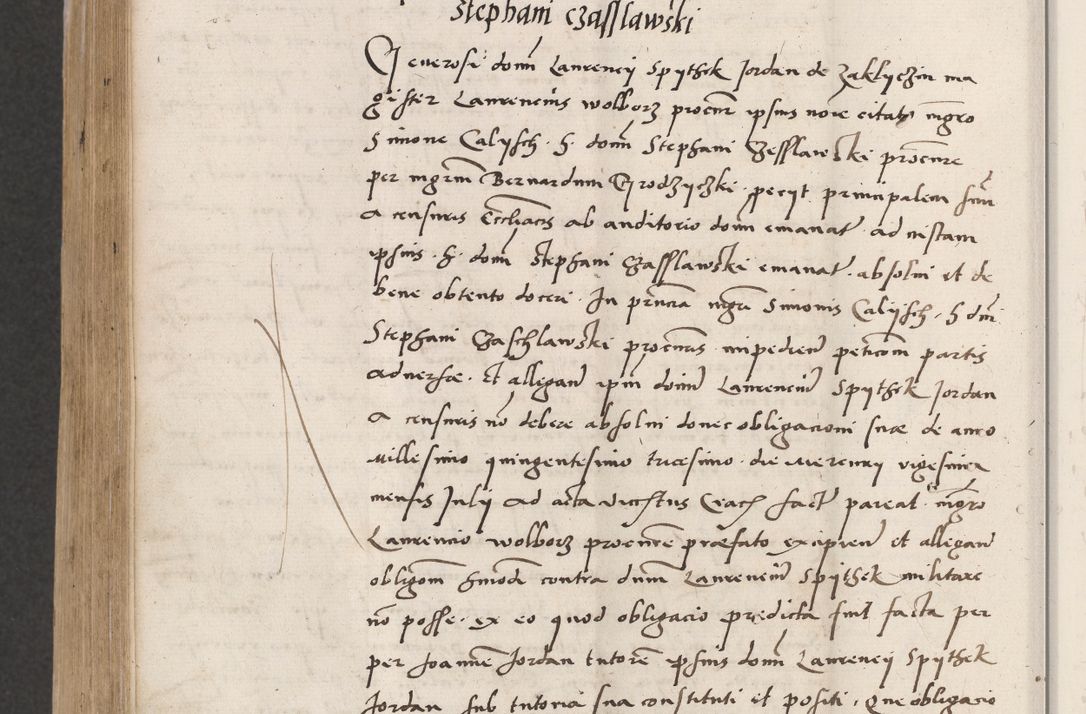 Stephani Czasslawski
Generosi domi Laurencÿ Spÿthek Jordan de Zaklyczin ma
gister Laurencius wolborz procur ipsius nore citatj mgro
Simone Calijsch. h. domi Stephani Czesslawski procure
per mgrm Bernardum Grodzyczki. pecijt principalem suu
a censuris Ecclacis ab auditorio domi emanat. ad instam
ipsius. h. domi Stephani Czasslawski emanat. absolui et de
bene obtento doceri. In pruncia mgri Simonis Calijsch. h dni
Stephani Czaschlawski procuris impedien peticom partis
aduersæ. Et allegan ipm domi Laurenciu Spijthek Jordan
a censuris no debere absolui donec obligacioni suæ de anno
Millesimo quingentesimo tricesimo. die Mercurij vigesima
mensis Julij ad acta Craco fact pareat. mgro
Laurencio wolborz procure præfato excipien et allegan
obligom hmodi contra dnm Laurenciu Spijthek militare
no posse. ex eo quod obligacio predicta fuit facta per
per Joannē Jordan tutorē ipsius domi Laurencij Spijthek
Jordan sub tutoria sua constituti et positi. Que obligacio